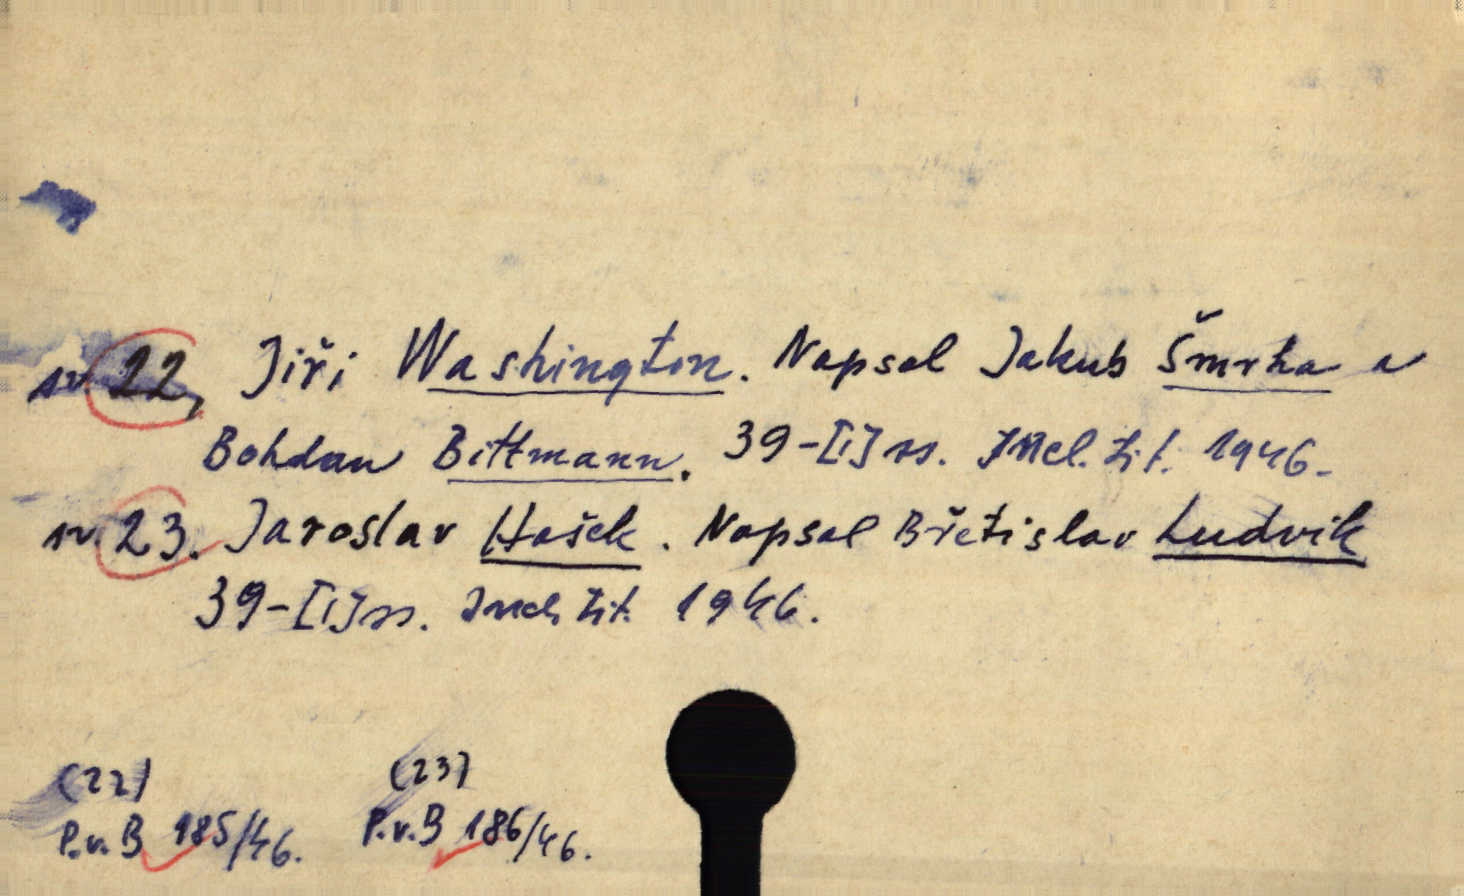 sv. 22, Jiří Washington. Napsal Jakub Šmrha a
Bohdan Bittmann. 39-[I] ss. Lit. 1946.
sv. 23. Jaroslav Hašek. Napsal Břetislav Ludvík
39-[I] ss. Lit. 1946.
(22) (23)
P.v.B 185/46. P.v.B 186/46.